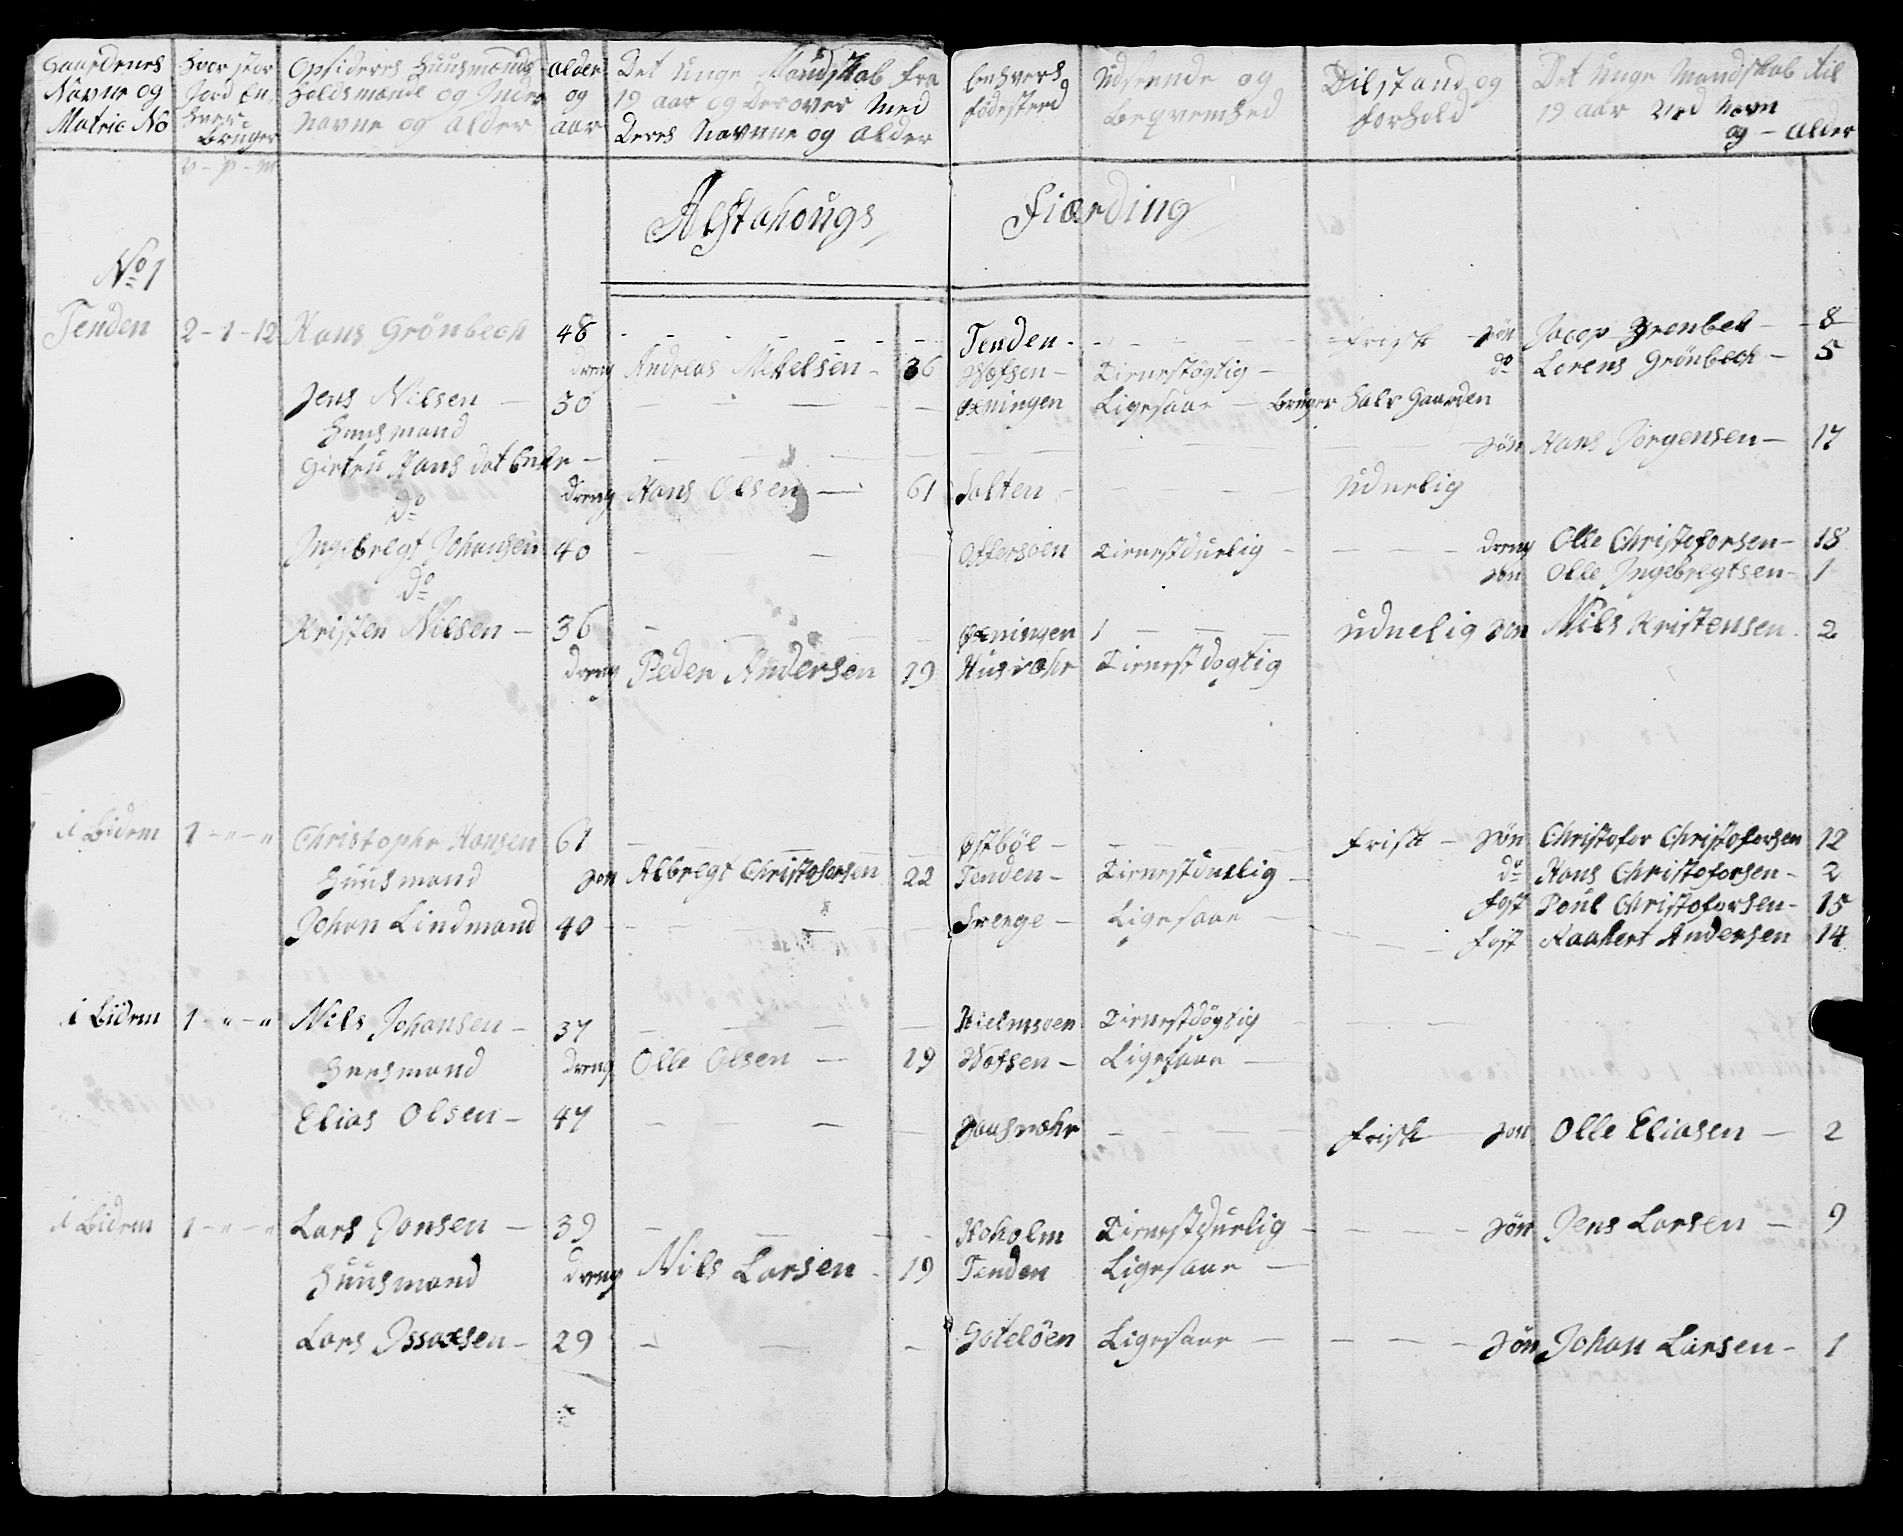 Gaardenes Navne og Matric No
Hvor stor Jord En hver Bruger
Opsideres Huusmænds Holdsmænds og Inder Navne og Alder
Alder og aar
Det unge Mandskab fra 19 aar og Derover med Deres Navnne og Alder
Enhvers födesterd
Udseende og Beqvemhed
Tilstand og forhold
Det unge Mandskab til 19 aar med Navn og - Alder
v - p - m
Alstahougs Fiærding
No 1
Tenden 2-1-12 Hans Grönbech 48 - - - Tenden - - - Frisk - Sön Jacop Grenbek - 8
dreng Andreas Mekelsen - 36 Wefsen - Tienestögtig - do Lorens Grönbech - 5
Jens Nilsen - 30 - - - Øxningen Ligesaae - bruger halv Gaarden
Huusmand
Girtru Hans dat Enke - - - - Sön Hans Jörgensen - 17
dreng Hans Olsen - 61 Salten - - - Uduelig
do
Ingebregt Johansen 40 - - Ottersoen Tienestduelig - - - dreng Olle Christofersen - 18
Sön Olle Ingebregtsen - 1
do
Kristen Nilsen - 36 - - - Øxningen - - - Uduelig Sön Nils Kristensen - 2
dreng Peder Andersen 19 Husvær Tienestdogtig
i bidem 1 - " - " Christophr Hansen 61 - - - Østböe - - - Frisk - Sön Christofor Christoforsen 12
Huusmand Sön Albregt Christofersen 22 Tenden - Tienestduelig - do Hans Christoforsen - 2
Fost Poul Christoforsen - 15
Johan Lindmand 40 - - - Svenge - Ligesaae - - - Fost Raahert Andersen 14
i bidem 1 - " - " Nils Johansen - 37 - - - Hielmsoen Tienestdögtig - - -
Huusmand dreng Olle Olsen - 19 Wefsen - Ligesaae -
Elias Olsen - 47 - - - - - - Frisk Sön Olle Eliasen - 2
i bidem 1 - " - " Lars Jonsen - 39 - - - Hoholm Tienestduelig - - - Sön Jens Larsen - 9
Huusmand dreng Nils Larsen - 19 Tenden Ligesaae -
Lars Issacsen - 29 - - - Goteløen Ligesaae - - - - Sön Johan Larsen - 1